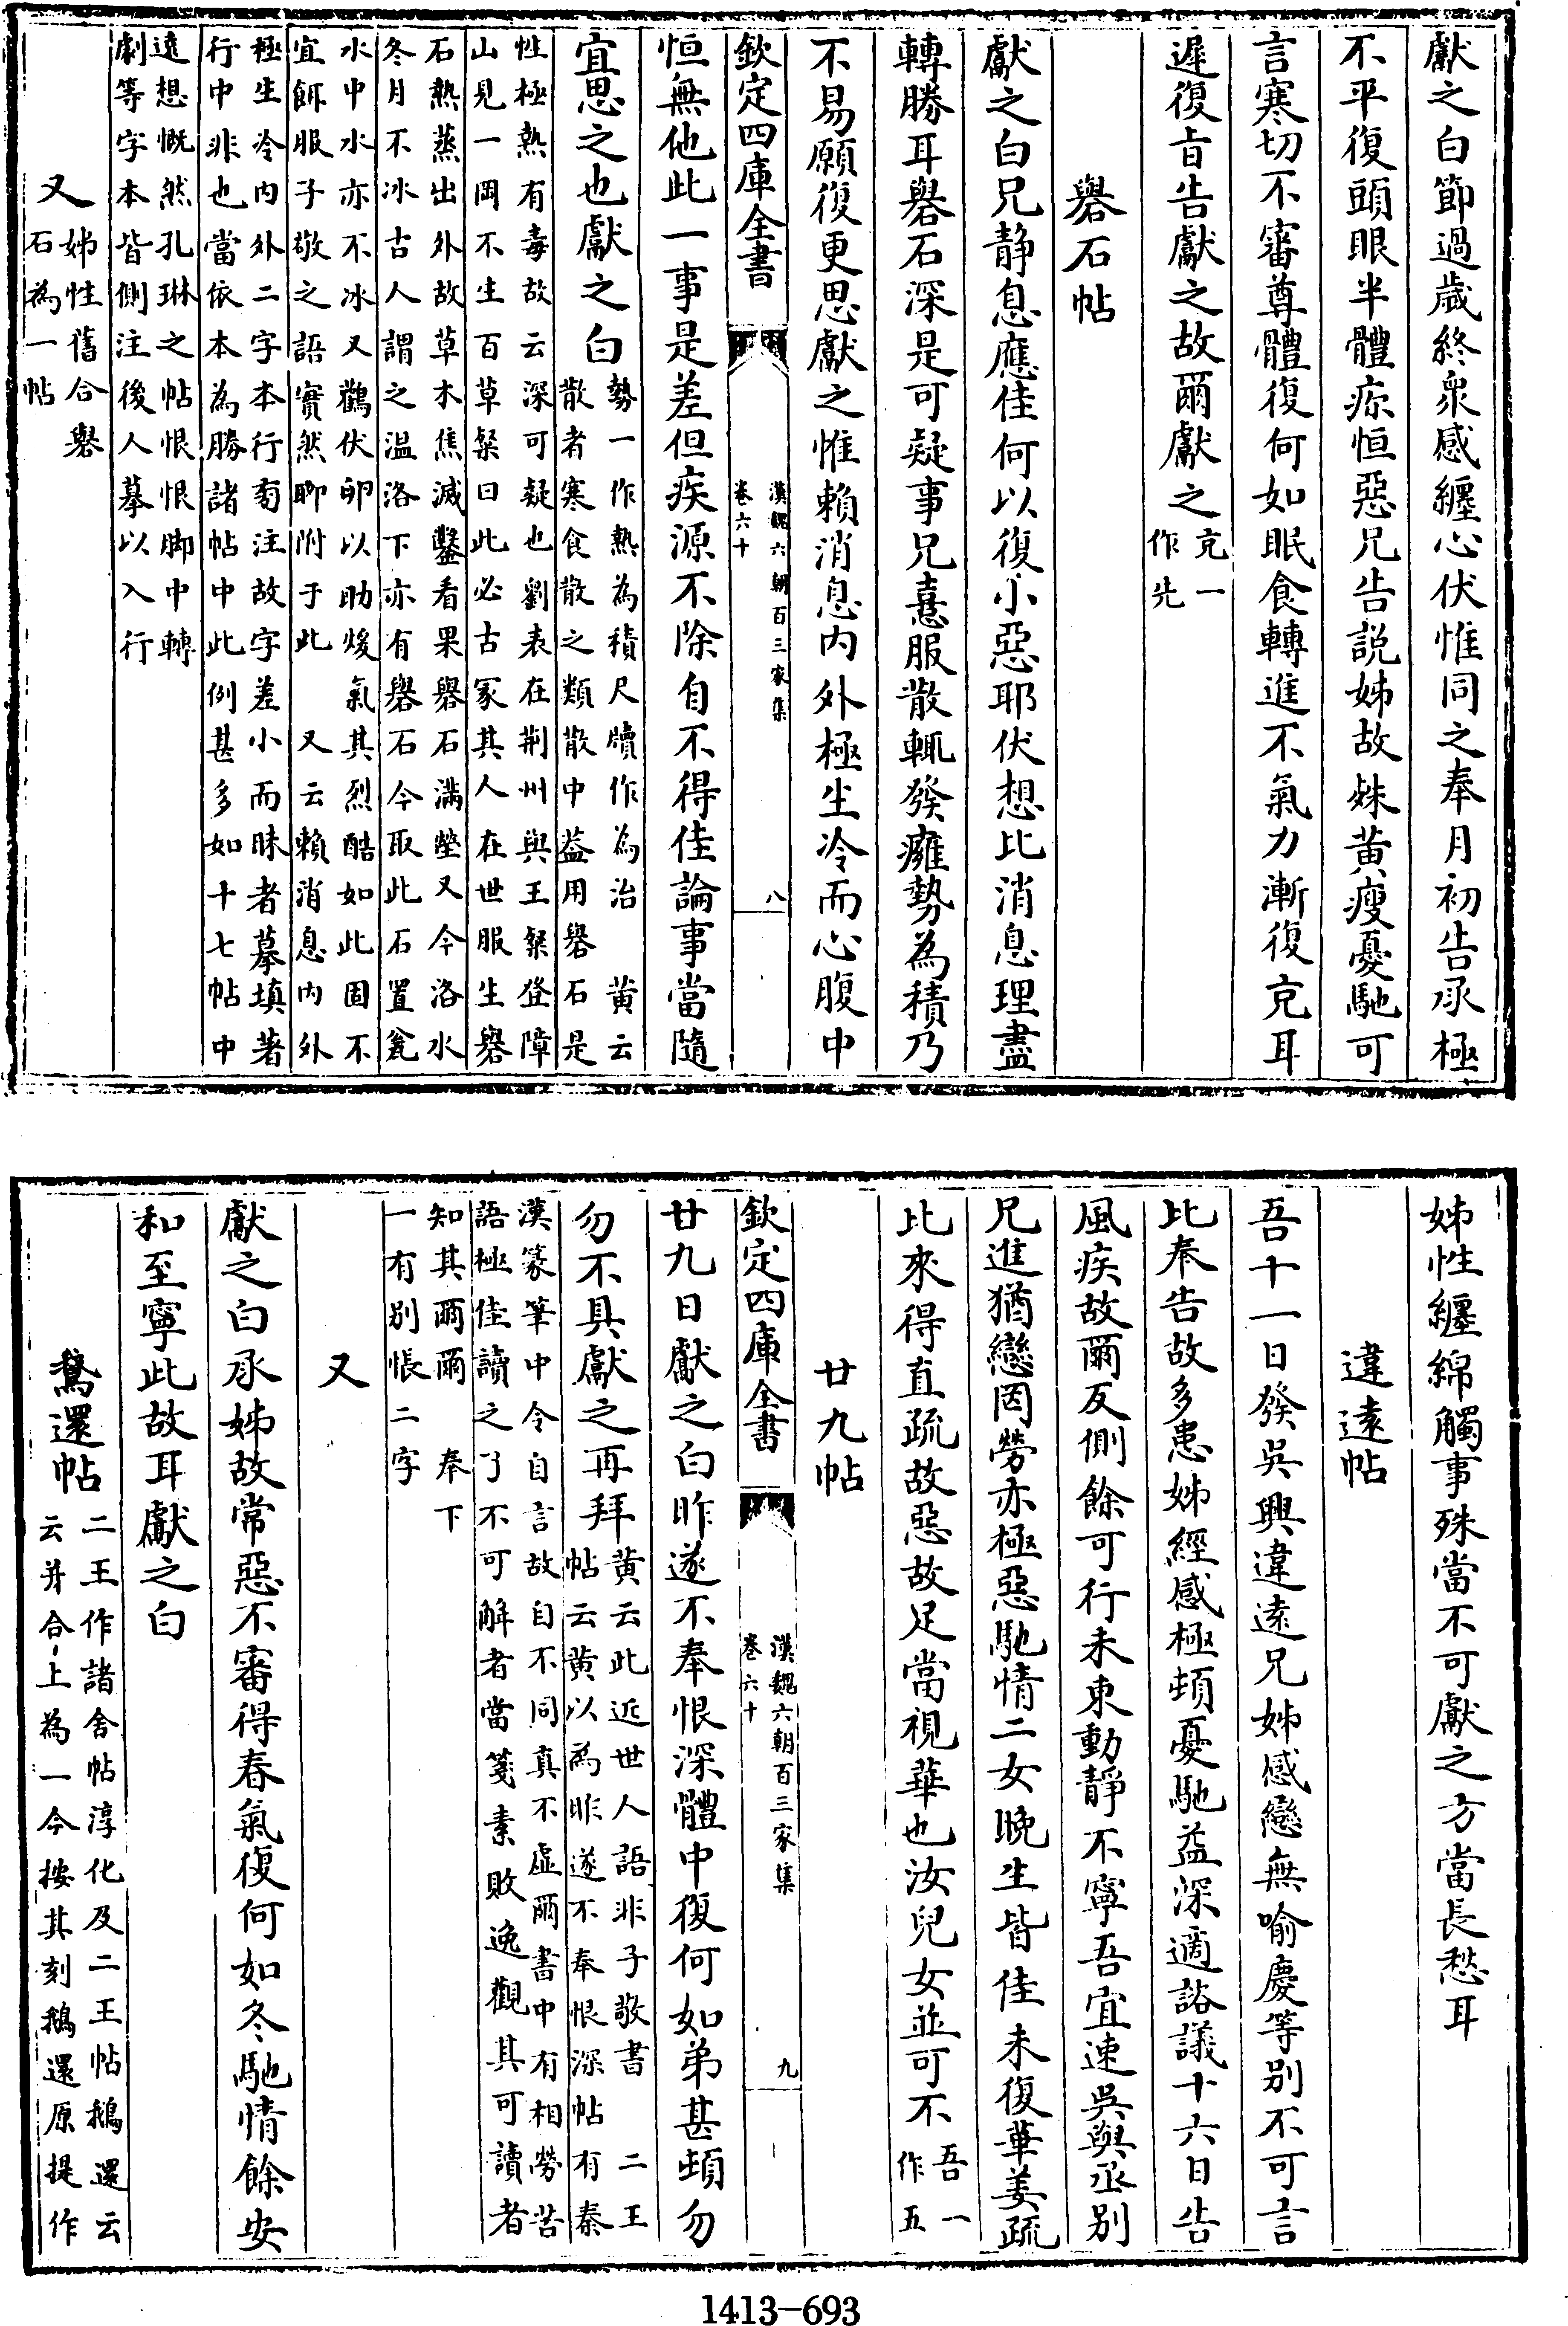 獻之白節過歲終衆感纏心伏惟同之奉月初告承極
不平復頭眼半體瘀恒惡兄告説姊故殊黄瘦憂馳可
言寒切不審尊體復何如眠食轉進不氣力漸復克耳
遲復㫖告獻之故爾獻之克一作先
礜石帖
獻之白兄静息應佳何以復小惡耶伏想比消息理盡
轉勝耳礜石深是可疑事兄憙服散輒發癰勢為積乃
不易願復更思獻之惟賴消息内外極生冷而心腹中
欽定四庫全書 漢魏六朝百三家集 卷六十 八
恒無他此一事是差但疾源不除自不得佳論事當隨
宜思之也獻之白 勢一作熱為積尺牘作為治 黄云
散者寒食散之類散中益用礜石是
性極熱有毒故云深可疑也劉表在荆州與王粲登障
山見一岡不生百草粲曰此必古冢其人在世服生礜
石熱蒸出外故草木焦滅鑿看果礜石滿塋又今洛水
冬月不冰古人謂之温洛下亦有礜石今取此石置瓮
水中水亦不冰又鸛伏卵以助煖氣其烈酷如此固不
宜餌服子敬之語實然聊附于此 又云賴消息内外
極生冷内外二字本行旁注故字差小而昧者摹填著
行中非也當依本為勝諸帖中此例甚多如十七帖中
遠想慨然孔琳之帖恨恨脚中轉
劇等字本皆側注後人摹以入行
又 姊性舊合礜石為一帖
姊性纏綿觸事殊當不可獻之方當長愁耳
違遠帖
吾十一日發吳興違遠兄姊感戀無喻慶等别不可言
比奉告故多患姊經感極頓憂馳益深適諮議十六日告
風疾故爾反側餘可行未東動靜不寧吾宜速吳興丞别
兄進猶戀罔勞亦極惡馳情二女晚生皆佳未復華姜疏
比來得直疏故惡故足當視華也汝兒女並可不 吾一作五
廿九帖
欽定四庫全書 漢魏六朝百三家集 卷六十 九
廿九日獻之白昨遂不奉恨深體中復何如弟甚頓勿
勿不具獻之再拜 黄云此近世人語非子敬書 二王
帖云黄以為昨遂不奉恨深帖有秦
漢篆筆中令自言故自不同真不虛爾書中有相勞苦
語極佳讀之了不可解者當箋素敗逸觀其可讀者
知其爾爾 奉下
一有别悵二字
又
獻之白承姊故常惡不審得春氣復何如冬馳情餘安
和至寧此故耳獻之白
鵞還帖 二王作諸舍帖淳化及二王帖鵝還云
云并合上為一今按其刻鵝還原提作
1413-693